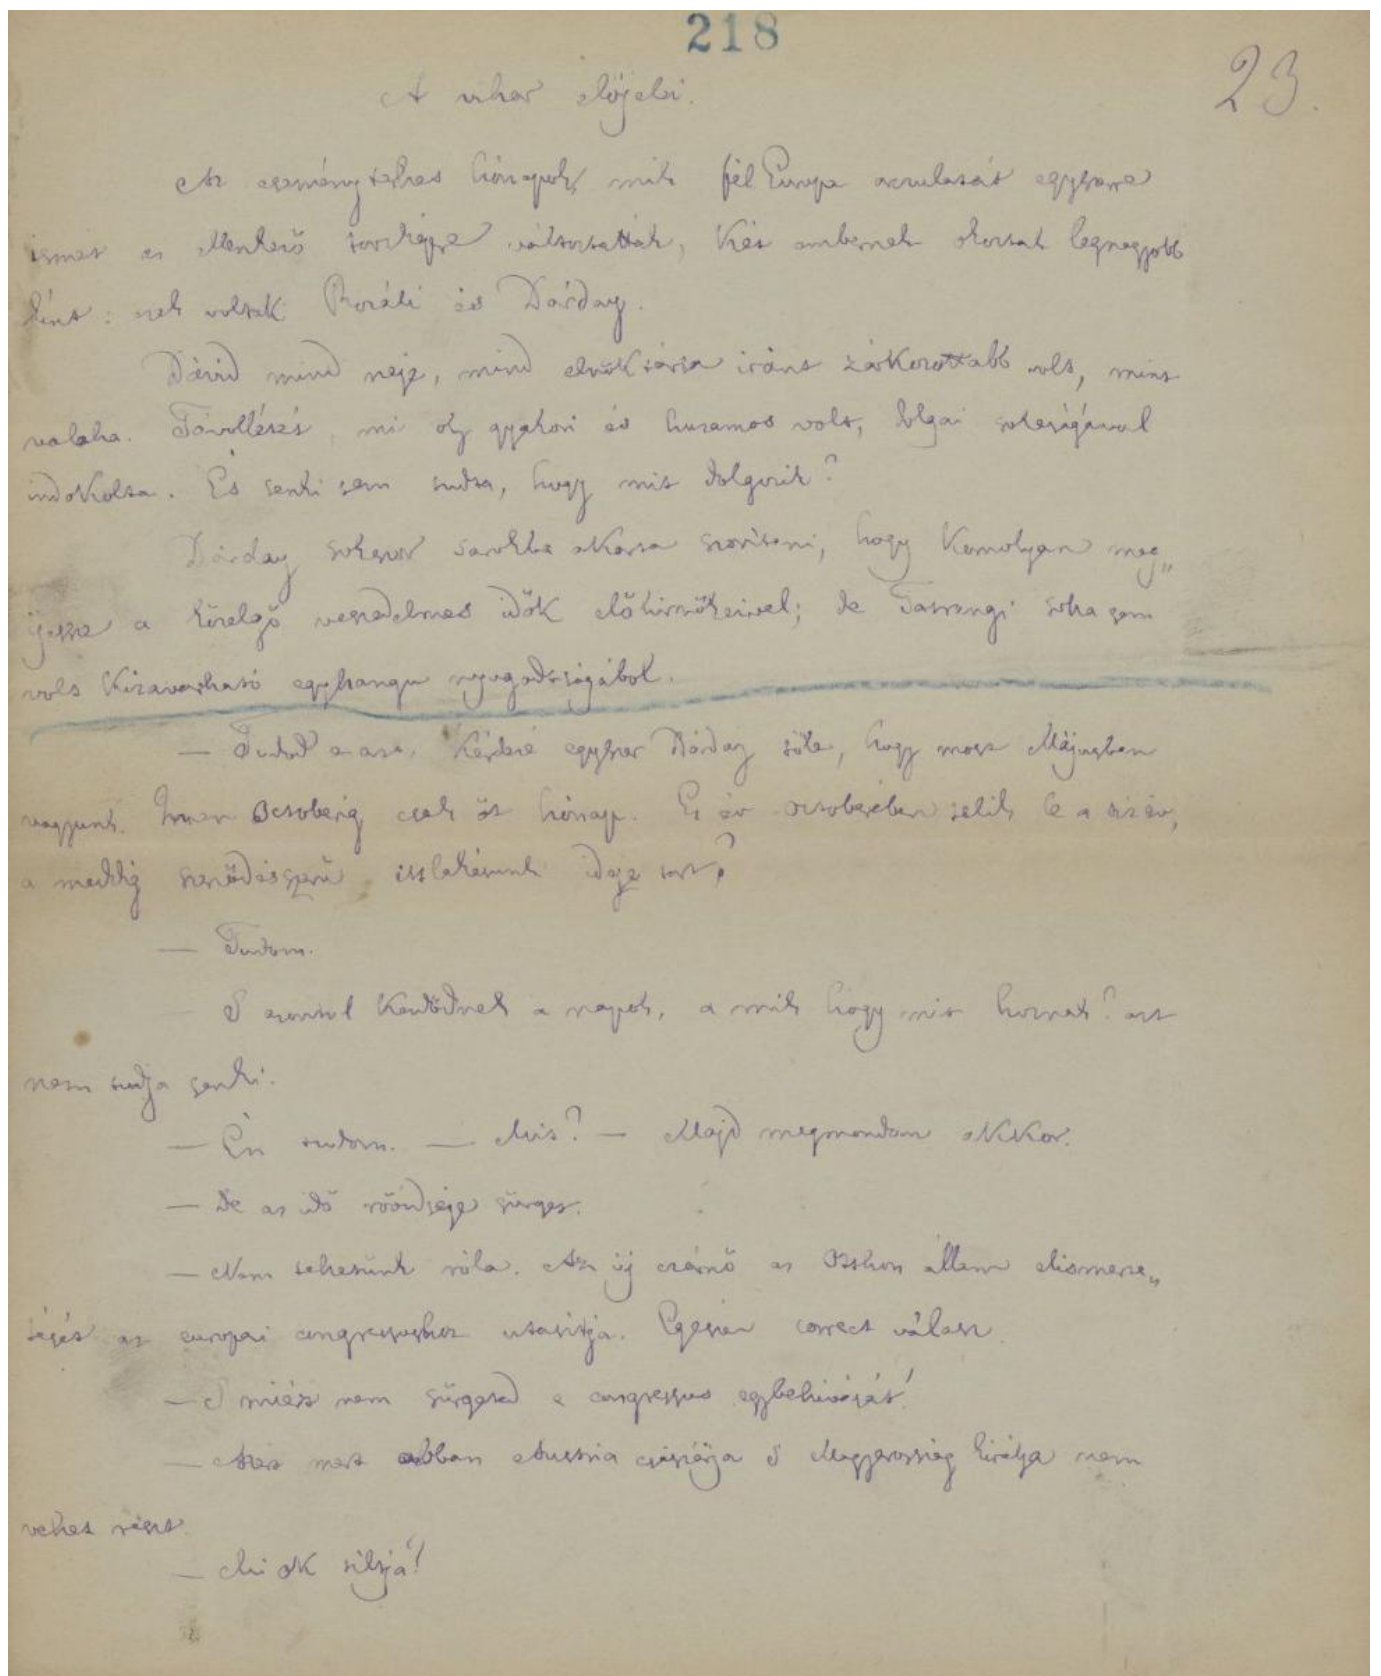 218
23.
A vihar előjelei.
Az eseményterhes hónapok, mik fél Európa arculatát egyszerre
ismét az ellenkező torzképpé változtatták, két embernek okoztak legnagyobb
kínt: ezek voltak Rozáli és Dárday.
Dávid mind neje, mind elnöktársa iránt zárkozottabb volt, mint
valaha. Távollétét, mi oly gyakori és huzamos volt, dolgai sokaságával
indokolta. És senki sem tudta, hogy mit dolgozik?
Dárday sokszor sarokba akarta szorítani, hogy komolyan meg„
ijessze a közelgő veszedelmes idők előhirnökeivel; de Tatrangi soha sem
volt kizavarható egyhangu nyugodtságából.
— Tudod e azt, kérdezé egyszer Dárday tőle, hogy most Májusban
vagyunk. Innen Octoberig csak öt hónap. Ez év octoberében telik le a tiz év,
a meddig szerződésszerű ittlakásunk ideje tart?
— Tudom.
S azontul kezdődnek a napok, a mik hogy mit hoznak? azt
nem tudja senki.
— Én tudom. — Mit? — Majd megmondom akkor.
— De az idő rövidsége sürget.
— Nem tehetünk róla. Az új czárnő az Otthon állam elismerte„
tését az europai congressushoz utasitja. Egészen correct válasz.
— S miért nem sürgeted e congressus egybehivását!
— Azért mert abban Austria császárja s Magyarország királya nem
vehet részt.
— Mi ok tiltja!